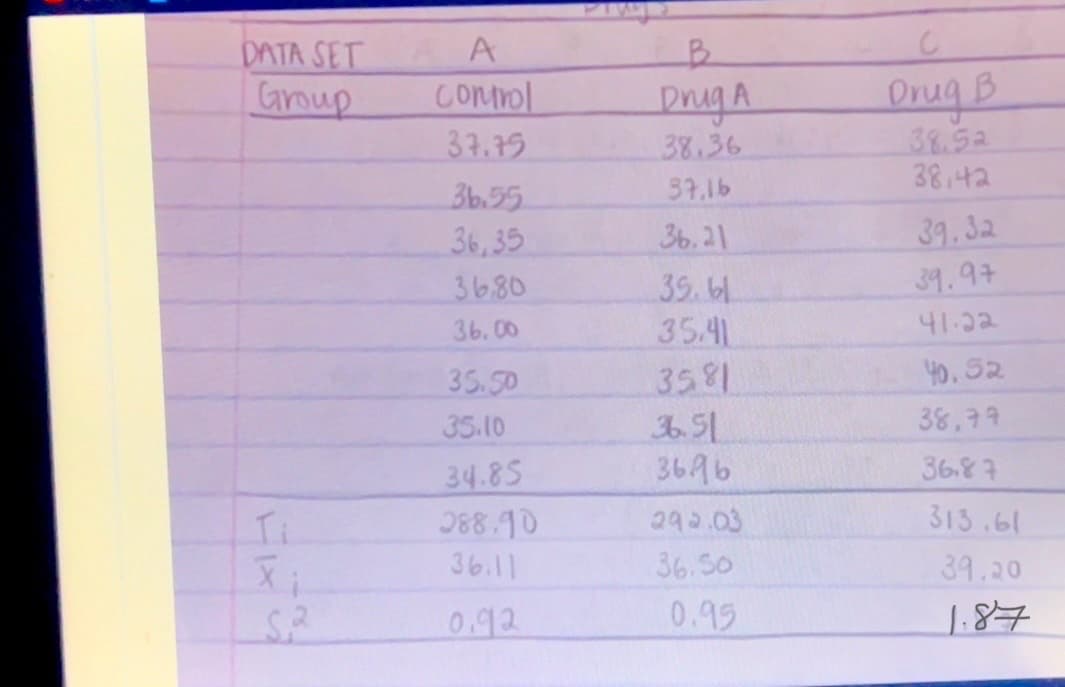 Drugs
DATA SET A B C
Group Control Drug A Drug B
37.75 38.36 38.52
36.55 37.16 38.42
36.35 36.21 39.32
36.80 35.61 39.97
36.00 35.41 41.22
35.50 35.81 40.52
35.10 36.51 38.77
34.85 36.96 36.87
Ti 288.90 292.03 313.61
x̄i 36.11 36.50 39.20
Si² 0.92 0.95 1.87